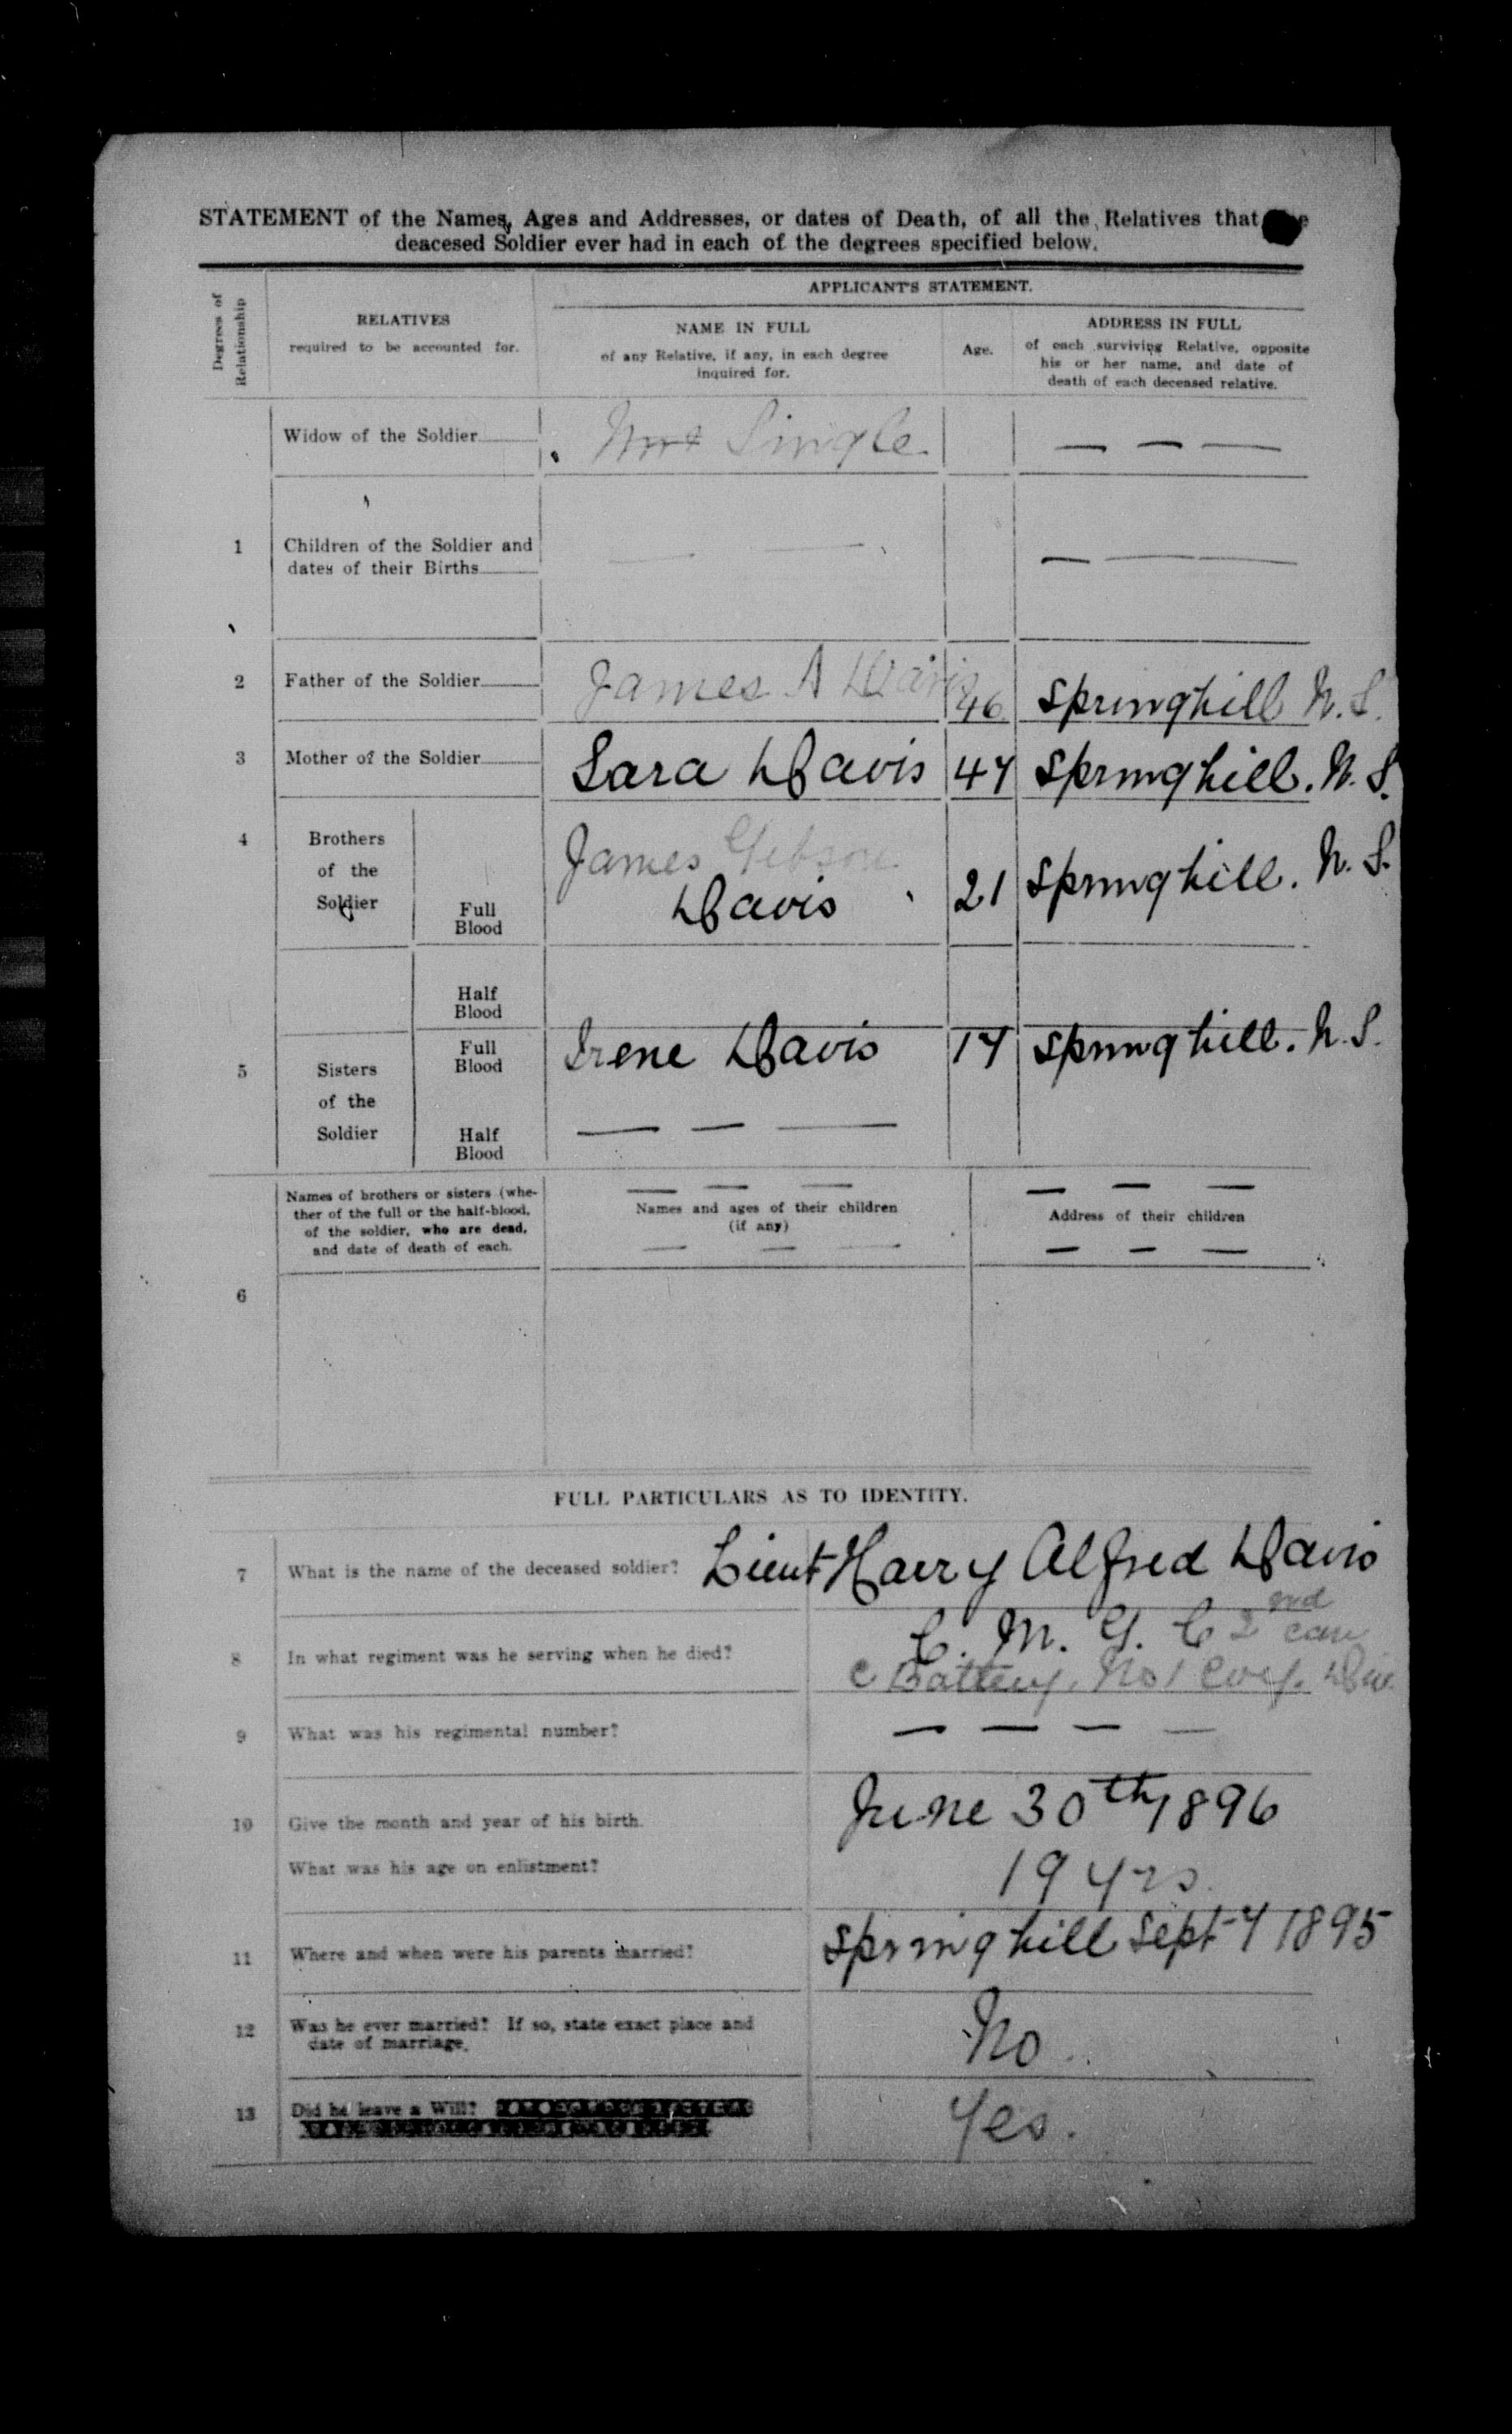 STATEMENT of the Names, Ages and Addresses, or dates of Death, of all the Relatives that
deacesed Soldier ever had in each of the degrees specified below.
Degrees of
Relationship
RELATIVES
required to be accounted for.
APPLICANT'S STATEMENT.
NAME IN FULL
of any Relative, if any, in each degree
inquired for.
Age.
ADDRESS IN FULL
of each surviving Relative, opposite
his or her name, and date of
death of each deceased relative.
Widow of the Soldier
Single. — — —
1 Children of the Soldier and
dates of their Births
2 Father of the Soldier James A Davis 46 Springhill N.S.
3 Mother of the Soldier Sara Davis 47 Springhill. N.S.
4 Brothers
of the
Soldier
Full
Blood
James Gibson
Davis 21 Springhill. N.S.
Half
Blood
5 Sisters
of the
Soldier
Full
Blood
Irene Davis 17 Springhill. N.S.
Half
Blood
— — —
Names of brothers or sisters (whe-
ther of the full or the half-blood,
of the soldier, who are dead,
and date of death of each.
— — —
Names and ages of their children
(if any)
— — —
— — —
Address of their children
— — —
6
FULL PARTICULARS AS TO IDENTITY.
7 What is the name of the deceased soldier? Lieut Harry Alfred Davis
8 In what regiment was he serving when he died? C. M. G. C 2nd Can
C Battery. No 1 Div.
9 What was his regimental number? — — — —
10 Give the month and year of his birth. June 30th 1896
What was his age on enlistment? 19 yrs.
11 Where and when were his parents married? Springhill Sept 7 1895
12 Was he ever married? If so, state exact place and
date of marriage.
No.
13 Did he leave a Will? Yes.